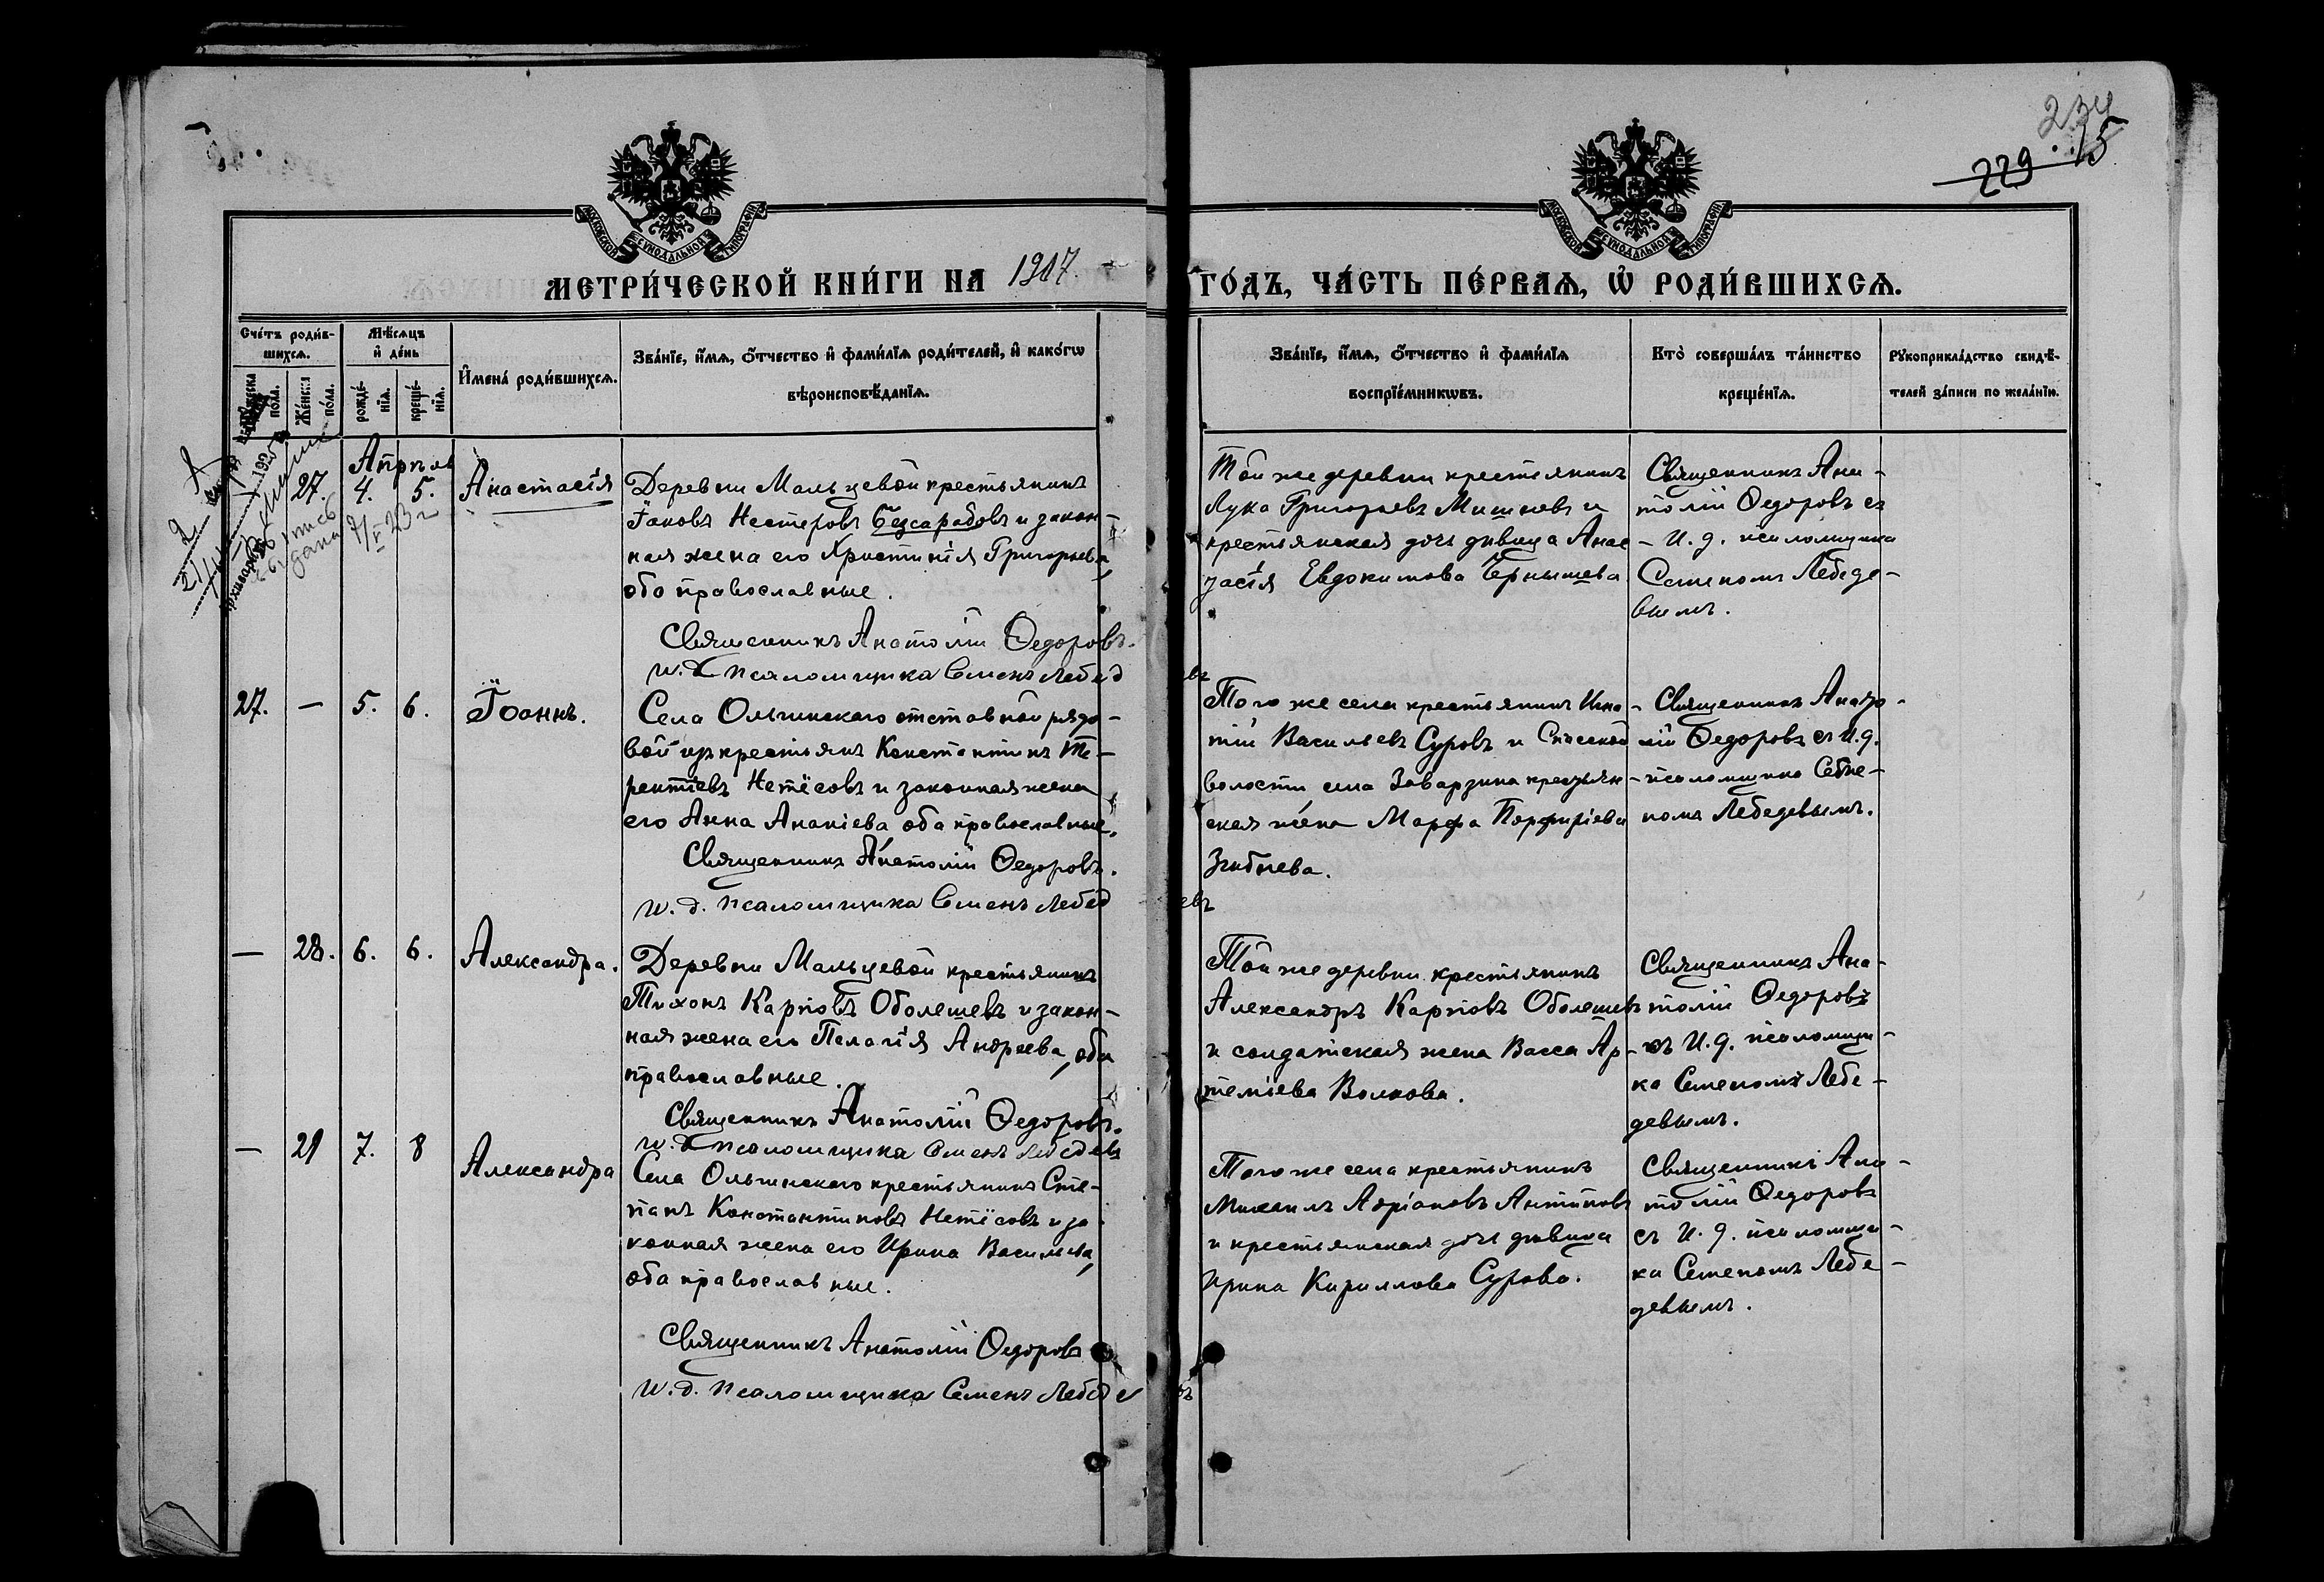 234
15
229
МОСКОВСКОЙ СУНОДАЛЬНОЙ ТИПОГРАФІИ
МОСКОВСКОЙ СУНОДАЛЬНОЙ ТИПОГРАФІИ
МЕТРИ́ЧЕСКОЙ КНИ́ГИ НА 1907.
ГО́ДЪ, ЧА́СТЬ ПЕ́РВАѦ, Ѡ҆ РОДИ́ВШИХСѦ.
Сче́тъ роди́в-
шихсѧ.
Мѣ́сѧцъ
и҆ де́нь
И҆мена́ роди́вшихсѧ.
Зва́нїе, и҆́мѧ, ѻ҆́тчество и҆ фами́лїѧ роди́телей, и҆ како́гѡ
вѣроисповѣ́данїѧ.
Же́нска
по́ла.
рожде́-
нїѧ.
креще́-
нїѧ.
Зва́нїе, и҆́мѧ, ѻ҆́тчество и҆ фами́лїѧ
воспрїе́мникѡвъ.
Кто̀ соверша́лъ та́инство
креще́нїѧ.
Рꙋкоприкла́дство свидѣ́-
телей за́писи по жела́нїю.
Апрѣль
27. 4. 5. Анастасія
Деревни Мальцевой крестьянинъ
Іаковъ Нестеровъ Безсарабовъ и закон-
ная жена его Христинія Григорьева,
оба православные.
Священникъ Анатолій Ѳедоровъ.
И. д. псаломщика Семенъ Лебедевъ
Той же деревни крестьянинъ
Лука Григорьевъ Мишневъ и
крестьянская дочь дѣвица Анас-
тасія Евдокимова Чернышева
Священникъ Ана-
толій Ѳедоровъ съ
И. д. псаломщика
Семеномъ Лебеде-
вымъ.
27. — 5. 6. Іоаннъ.
Села Ольгинскаго отставной рядо-
вой изъ крестьянъ Константинъ Те-
рентіевъ Нетёсовъ и законная жена
его Анна Ананіева, оба православные.
Священникъ Анатолій Ѳедоровъ.
И. д. псаломщика Семенъ Лебедевъ
Того же села крестьянинъ Игна-
тій Васильевъ Суровъ и Спасской
волости села Заварзина крестьян-
ская жена Марѳа Порфиріева
Священникъ Анато-
лій Ѳедоровъ съ И. д.
псаломщика Семе-
номъ Лебедевымъ.
— 28. 6. 6. Александра.
Деревни Мальцевой крестьянинъ
Тихонъ Карповъ Оболешевъ и закон-
ная жена его Пелагія Андреева, оба
православные.
Священникъ Анатолій Ѳедоровъ.
И. д. псаломщика Семенъ Лебедевъ
Той же деревни крестьянинъ
Александръ Карповъ Оболешевъ
и солдатская жена Васса Ар-
темiева Волкова.
Священникъ Ана-
толій Ѳедоровъ
съ И. д. псаломщи-
ка Семеномъ Лебе-
девымъ.
— 29 7. 8 Александра
Села Ольгинскаго крестьянинъ Сте-
панъ Константиновъ Нетёсовъ и за-
конная жена его Ирина Васильева,
оба православные.
Священникъ Анатолій Ѳедоровъ
И. д. псаломщика Семенъ Лебедевъ
Того же села крестьянинъ
Михаилъ Адріановъ Антиповъ
и крестьянская дочь дѣвица
Ирина Кириллова Сурова.
Священникъ Ана-
толій Ѳедоровъ
съ И. д. псаломщи-
ка Семеномъ Лебе-
девымъ.